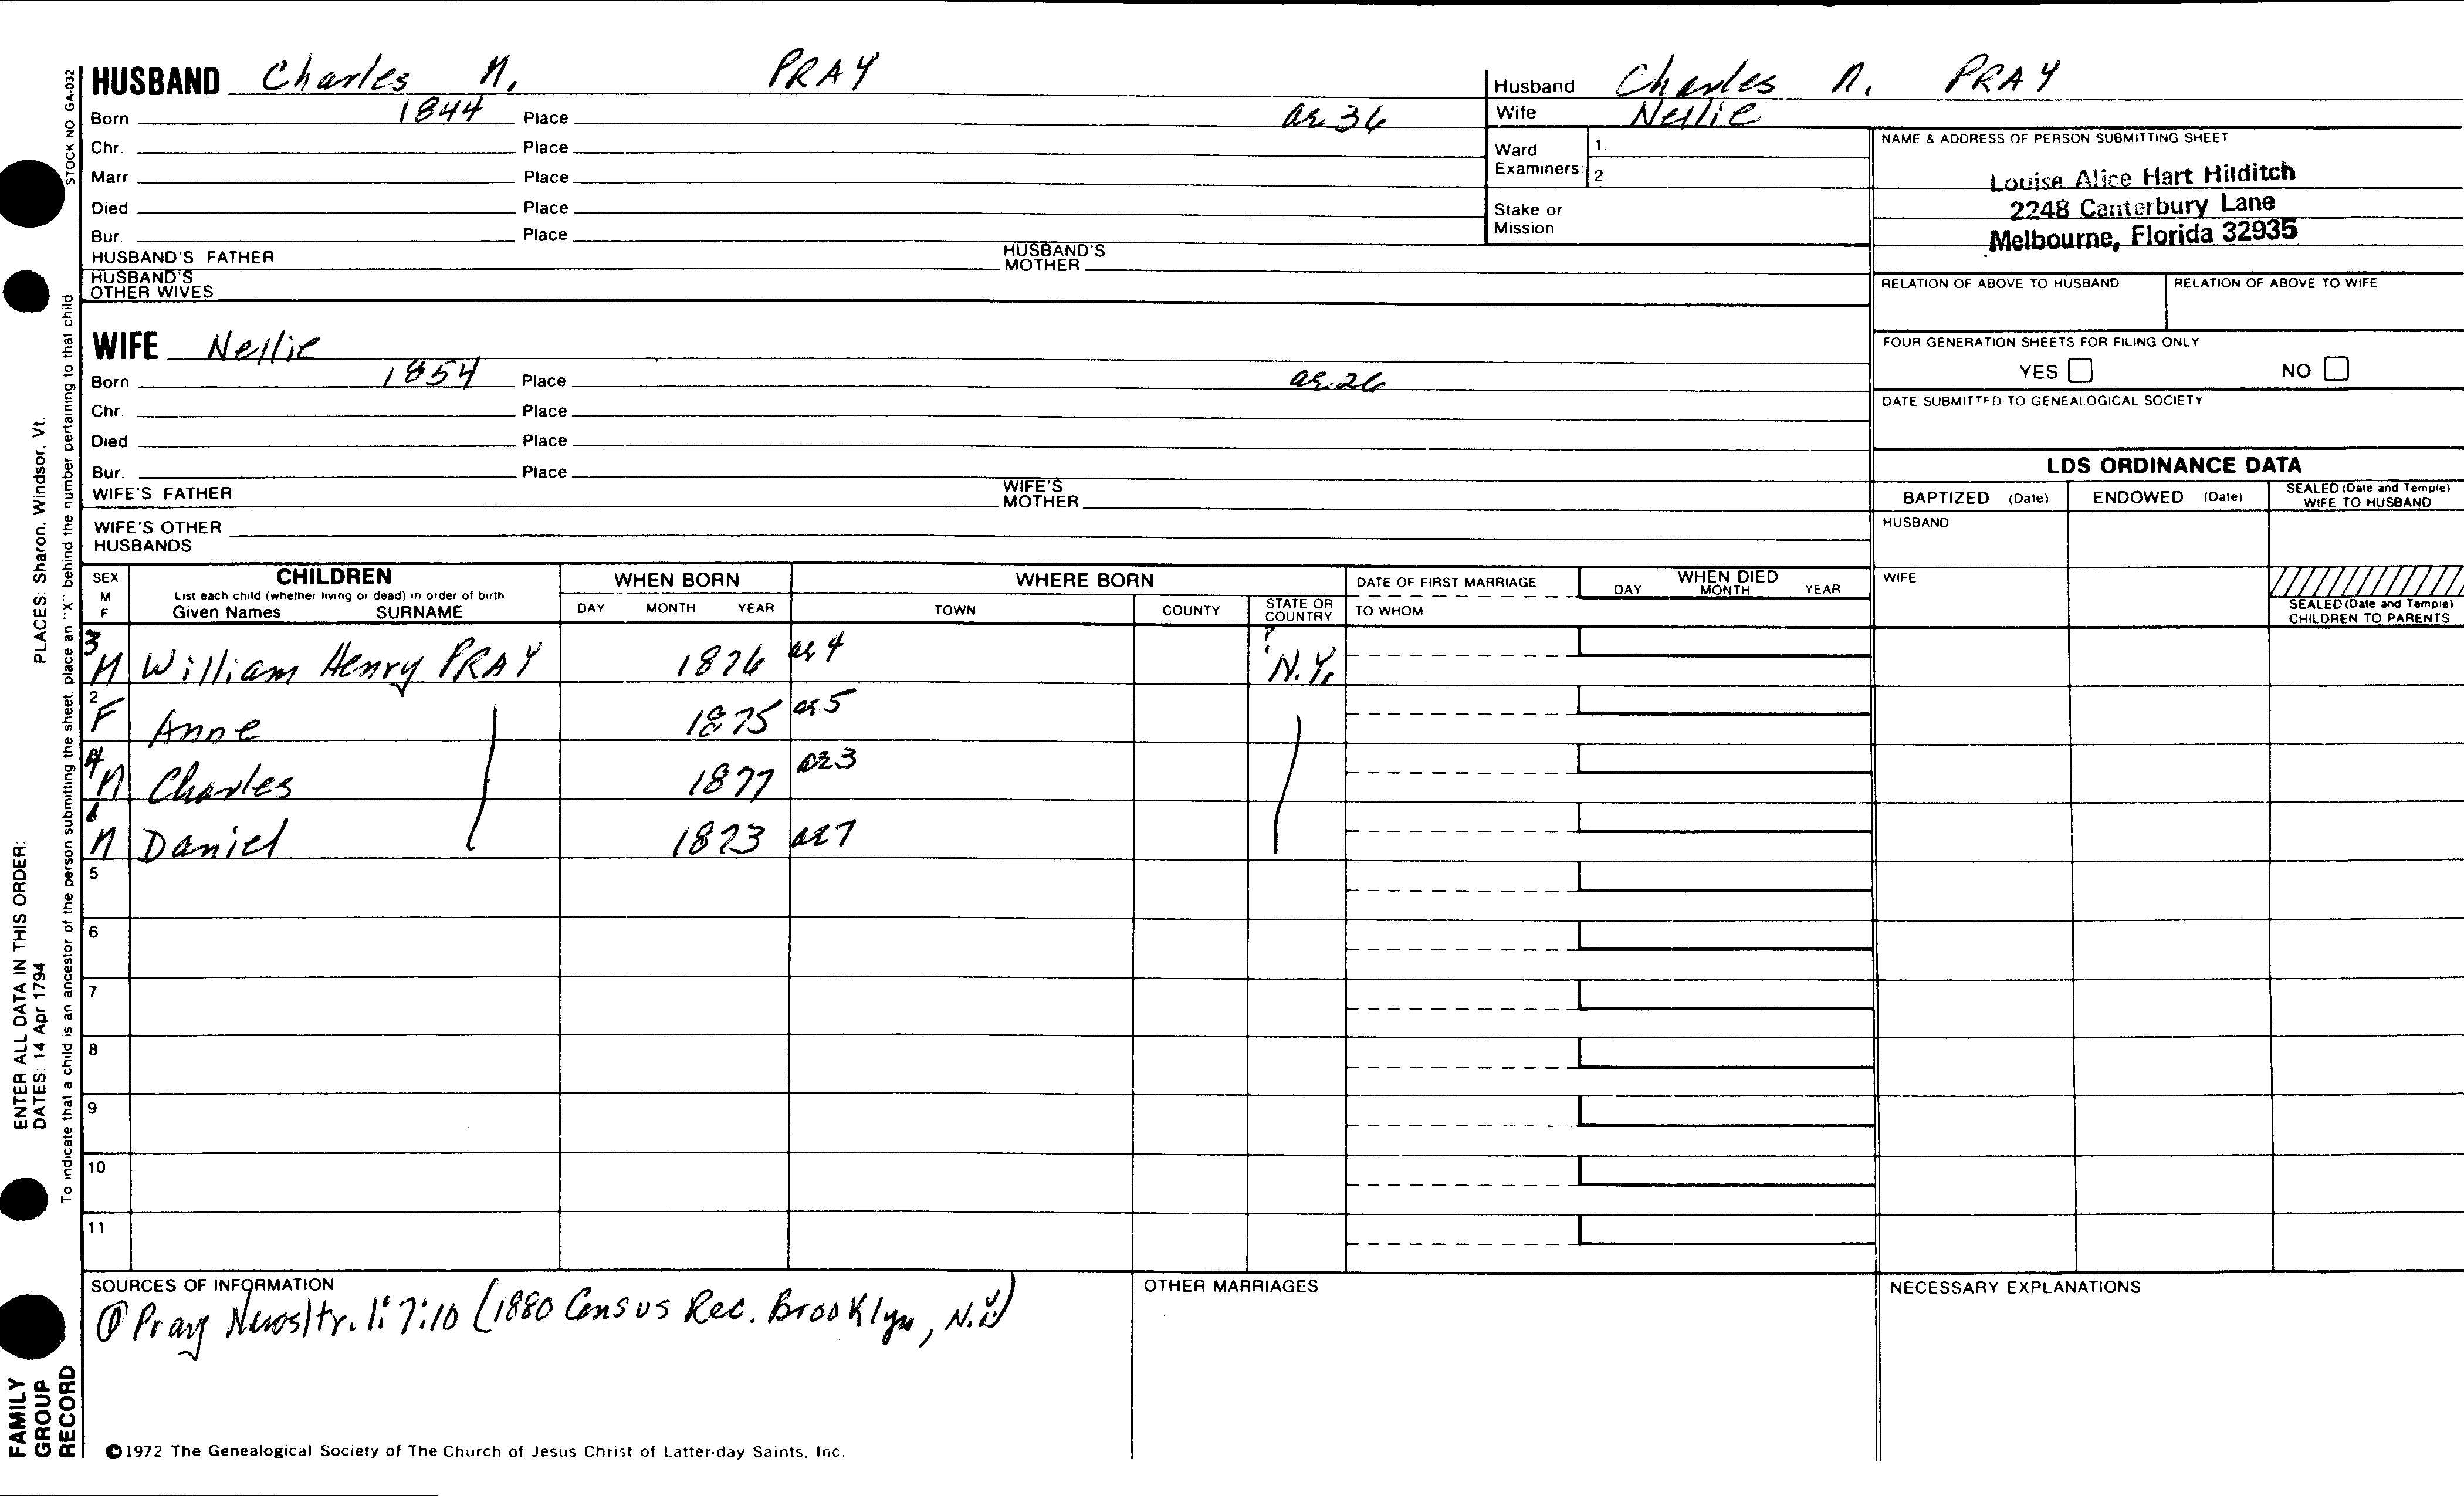 HUSBAND Charles N. PRAY
Born 1844 Place ae 36
Chr. Place
Marr. Place
Died Place
Bur. Place
HUSBAND'S FATHER HUSBAND'S MOTHER
HUSBAND'S OTHER WIVES
Husband Charles N. PRAY
Wife Nellie
Ward Examiners: 1.
2.
Stake or Mission
NAME & ADDRESS OF PERSON SUBMITTING SHEET
Louise Alice Hart Hilditch
2248 Canterbury Lane
Melbourne, Florida 32935
RELATION OF ABOVE TO HUSBAND RELATION OF ABOVE TO WIFE
FOUR GENERATION SHEETS FOR FILING ONLY
YES NO
DATE SUBMITTED TO GENEALOGICAL SOCIETY
WIFE Nellie
Born 1854 Place ae 26
Chr. Place
Died Place
Bur. Place
WIFE'S FATHER WIFE'S MOTHER
WIFE'S OTHER HUSBANDS
LDS ORDINANCE DATA
BAPTIZED (Date) ENDOWED (Date) SEALED (Date and Temple) WIFE TO HUSBAND
HUSBAND
WIFE
SEALED (Date and Temple) CHILDREN TO PARENTS
SEX M F
CHILDREN
List each child (whether living or dead) in order of birth
Given Names SURNAME
WHEN BORN
DAY MONTH YEAR
WHERE BORN
TOWN COUNTY STATE OR COUNTRY
DATE OF FIRST MARRIAGE
TO WHOM
WHEN DIED
DAY MONTH YEAR
3 M William Henry PRAY 1876 ae 4 ? N.Y.
2 F Anne 1875 ae 5
4 M Charles 1877 ae 3
1 M Daniel 1873 ae 7
5
6
7
8
9
10
11
SOURCES OF INFORMATION
① Pray Newsltr. 1:7:10 (1880 Census Rec. Brooklyn, N.Y.)
OTHER MARRIAGES
NECESSARY EXPLANATIONS
©1972 The Genealogical Society of The Church of Jesus Christ of Latter-day Saints, Inc.
STOCK NO GA-032
To indicate that a child is an ancestor of the person submitting the sheet, place an "X" behind the number pertaining to that child
ENTER ALL DATA IN THIS ORDER:
DATES: 14 Apr 1794 PLACES: Sharon, Windsor, Vt.
FAMILY
GROUP
RECORD